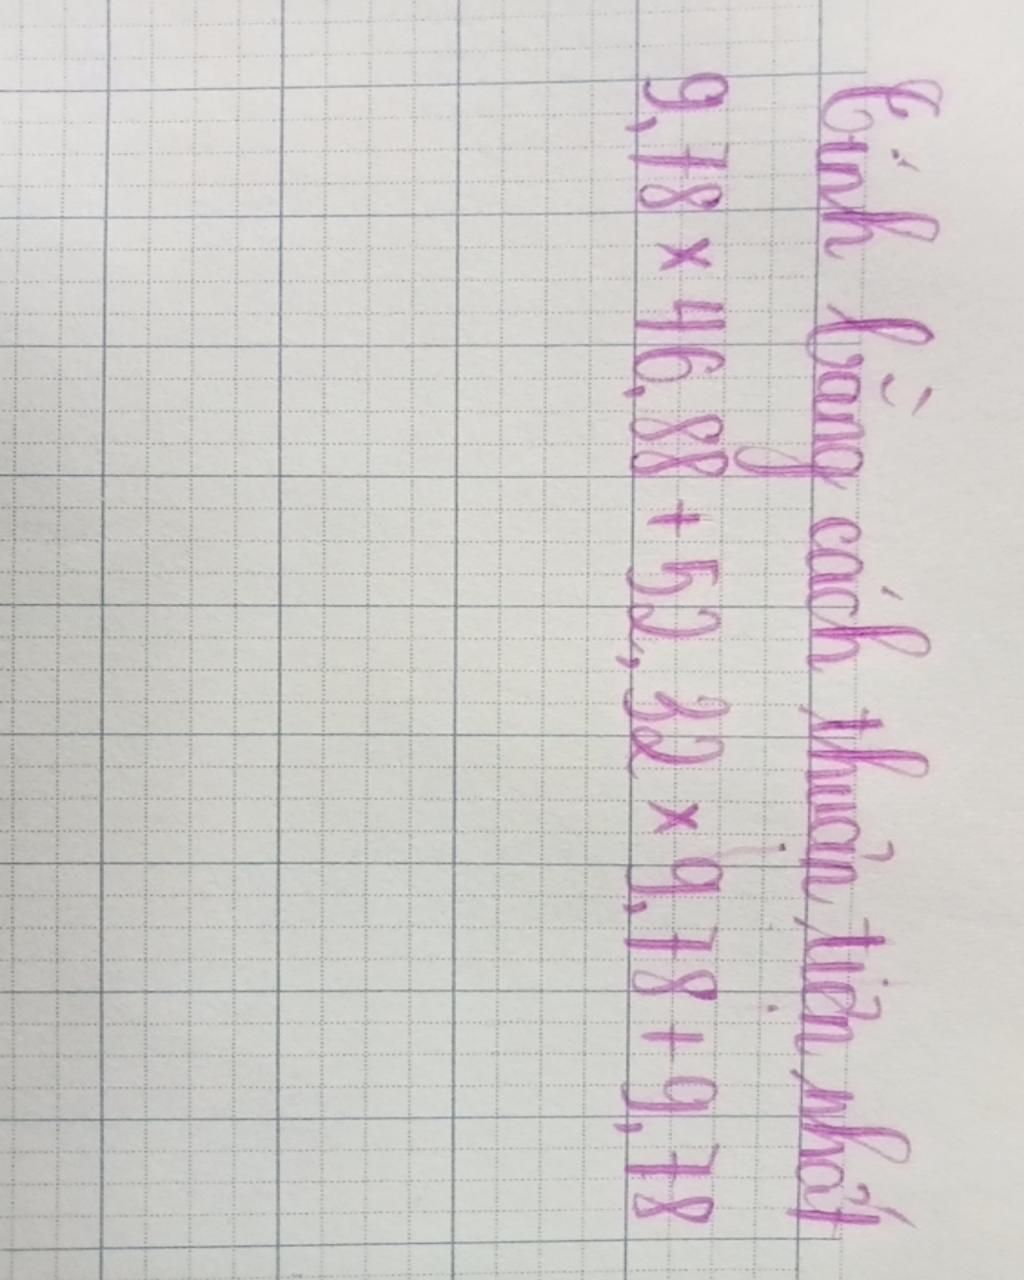 Tính bằng cách thuận tiện nhất
9,78 x 46,88 + 52,32 x 9,78 + 9,78